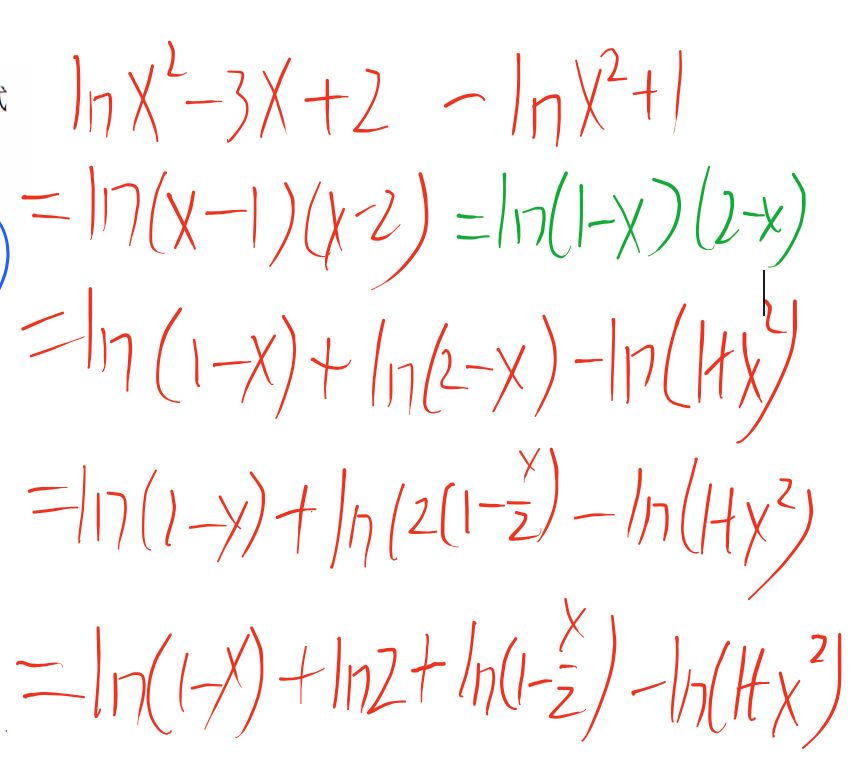 lnx²-3x+2 -lnx²+1
=ln(x-1)(x-2) =ln(1-x)(2-x)
=ln(1-x)+ln(2-x)-ln(1+x²)
=ln(1-x)+ln(2(1-x/2)-ln(1+x²)
=ln(1-x)+ln2+ln(1-x/2)-ln(1+x²)